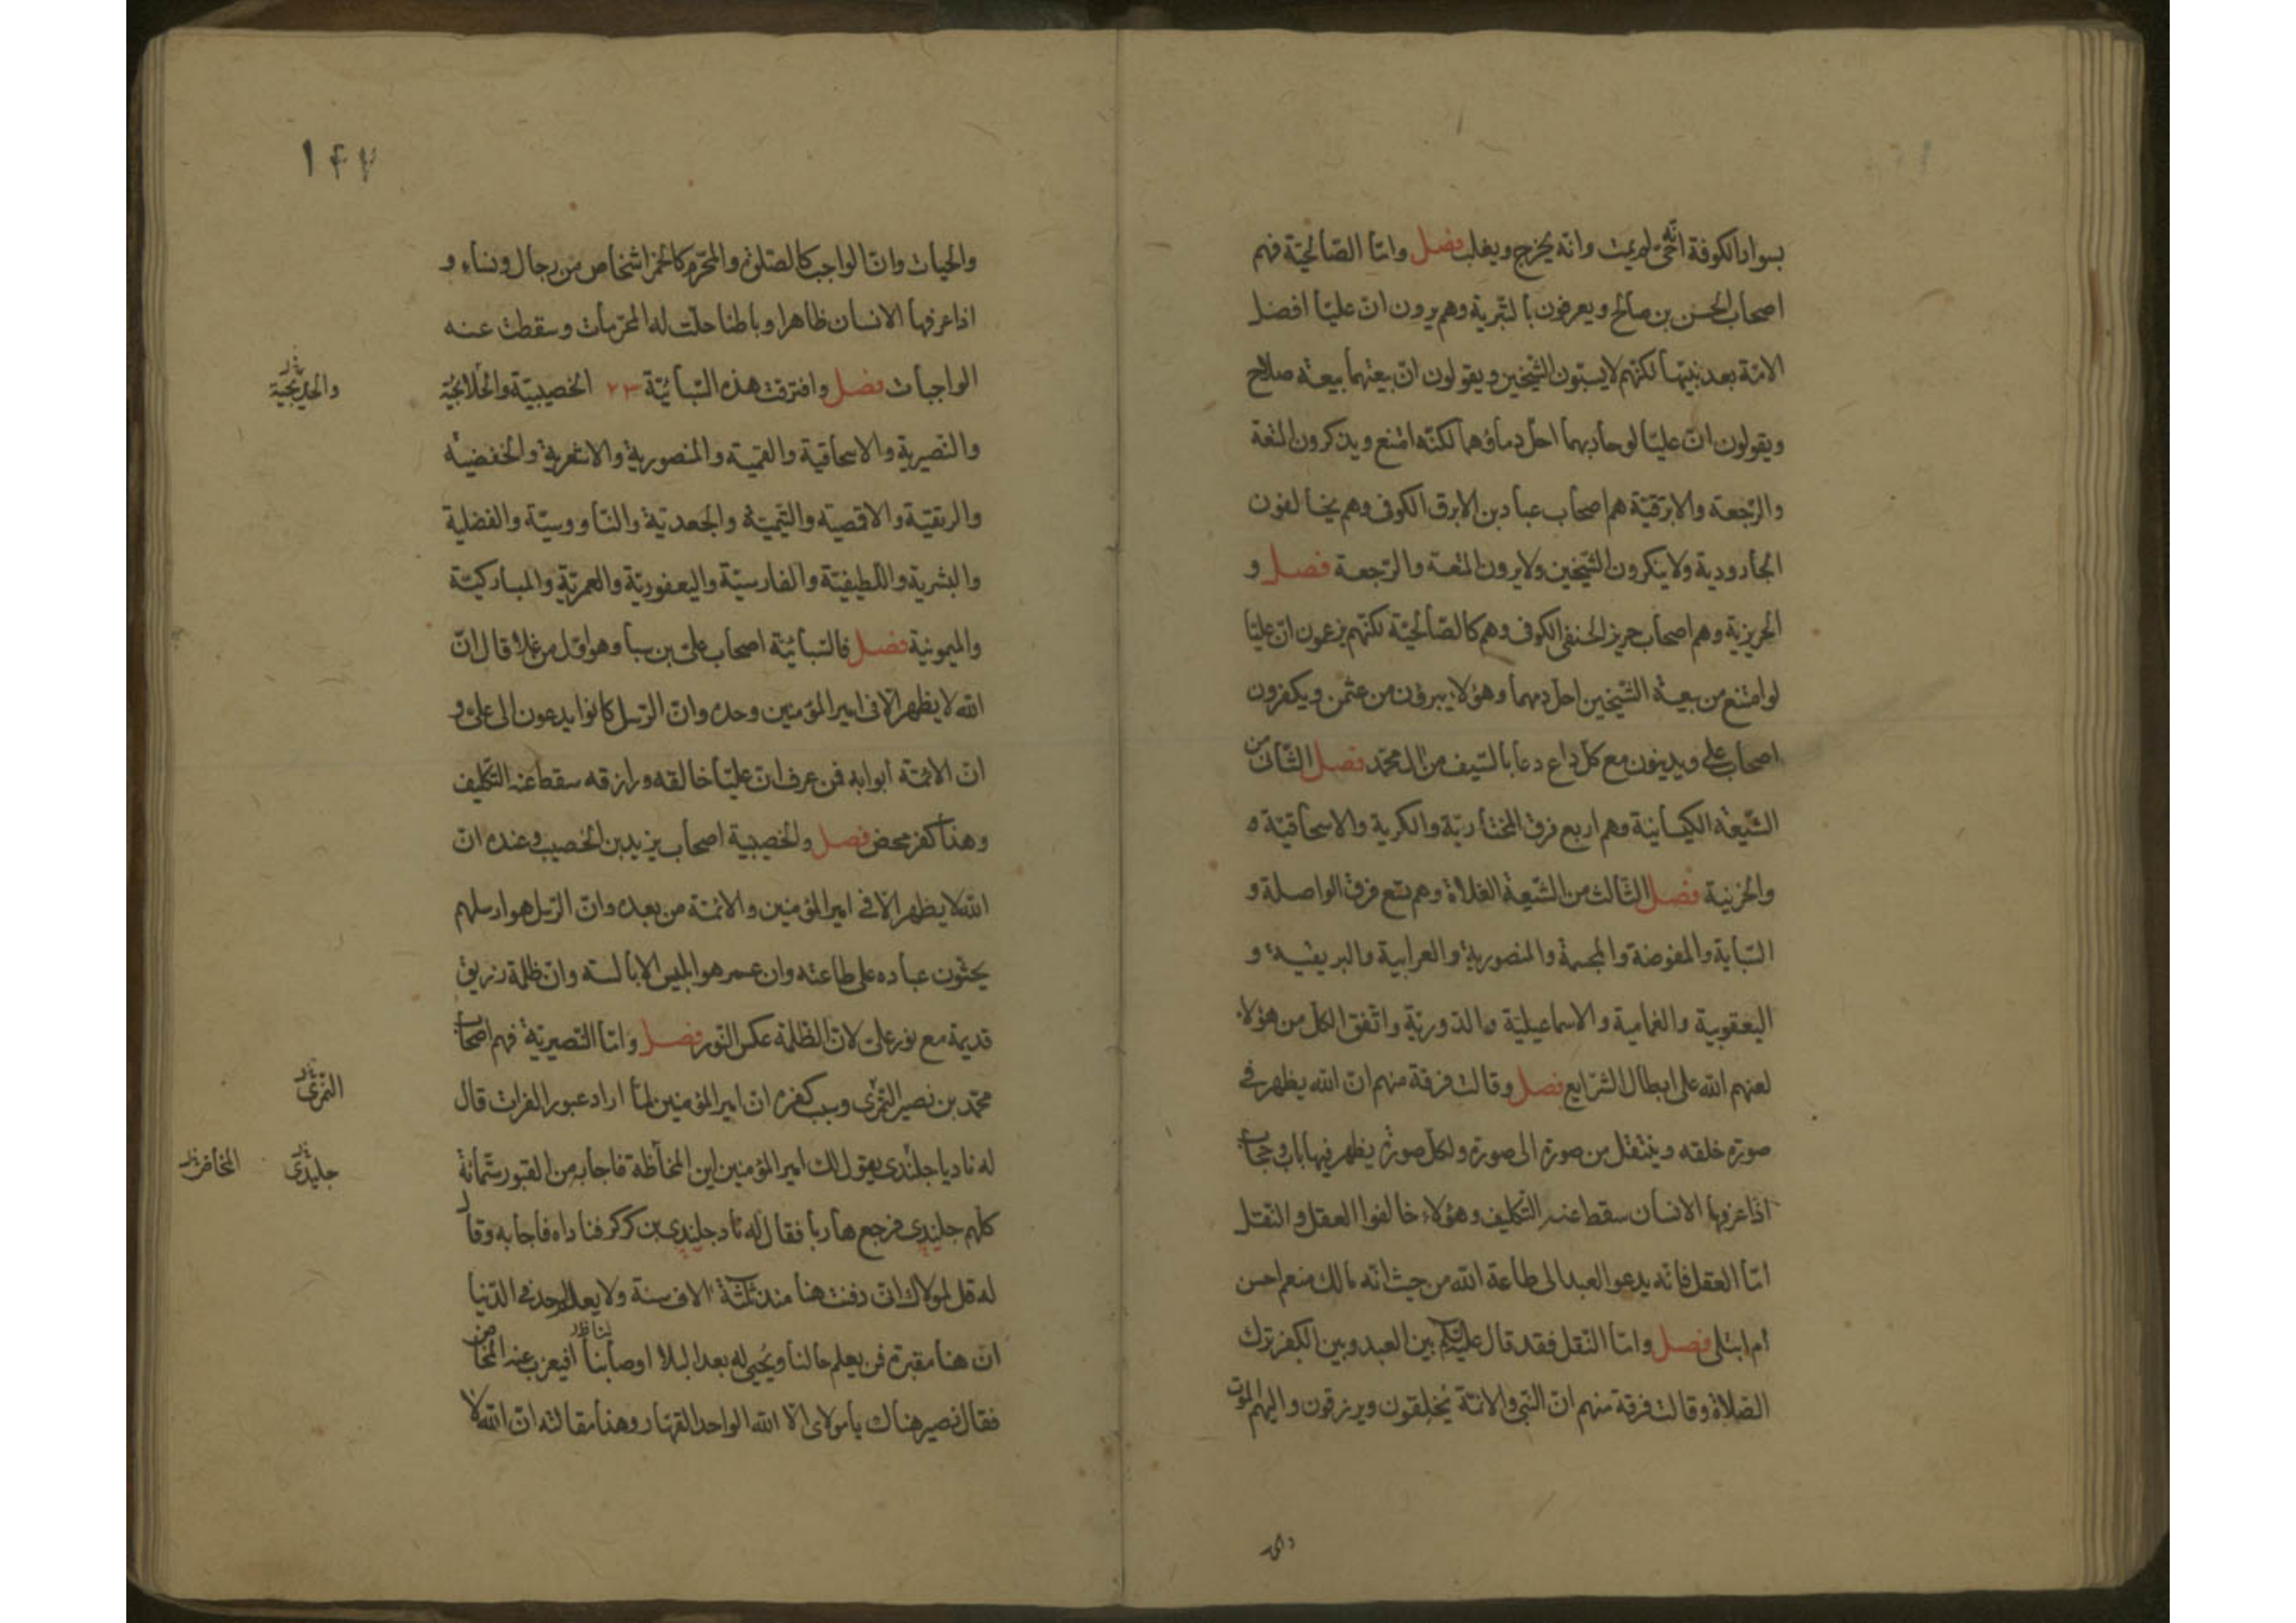 بسواد الكوفة انه حي لم يمت وانه يخرج ويغلب فصل وامّا الصّالحيّة فهم
اصحاب الحسن بن صالح ويعرفون بالبترية وهم يرون انّ عليّا افضل
الامّة بعد نبيّها لكنّهم لا يسبّون الشّيخين ويقولون انّ بيعتهما بيعة صلاح
ويقولون انّ عليّا لو حاربهما احلّ دماؤهما لكنّه امتنع وينكرون المتعة
والرّجعة والابرقيّة هم اصحاب عباد بن الابرق الكوفي وهم يخالفون
الجارودية ولا ينكرون الشّيخين ولا يرون المتعة والرّجعة فصل و
الحريزية وهم اصحاب حريز الحنفي الكوفي وهم كالصّالحيّة لكنّهم يزعمون انّ عليّا
لو امتنع من بيعة الشّيخين احل دمهما وهؤلاء يبرؤن من عثمن ويكفرون
اصحاب علي ويدينون مع كلّ داع دعا بالسّيف من ال محمّد فصل الثّاني من
الشّيعة الكيسانيّة وهم اربع فرق المختاريّة والكربية والاسحاقيّة ه
والحزنية فصل الثّالث من الشّيعة الغلاة وهم تسع فرق الواصلة و
السّبايّة والمفوضة والمجسمة والمنصورية والعرابية والبريفيه و
اليعقوبية والغمامية والاسماعيليّة والدّوريّة واتّفق الكل من هؤلاء
لعنهم الله على ابطال الشّرايع فصل وقالت فرقة منهم انّ الله يظهر في
صورة خلقه وينتقل من صورة الى صورة ولكلّ صورة يظهر فيها باب وحجاب
اذا عرفها الانسان سقط عنه التّكليف وهؤلاء خالفوا العقل والنّقل
امّا العقل فانّه يدعو العبد الى طاعة الله من حيث انّه مالك منعم احسن
ام ابتلى فصل وامّا النّقل فقد قال عليه السّلم بين العبد وبين الكفر ترك
الصّلاة وقالت فرقة منهم انّ النّبي والائمّة يخلقون ويرزقون واليهم الموت
١٤٧
والحيات وانّ الواجب كالصّلوة والمحرّم كالخمر اشخاص من رجال ونساء و
اذا عرفها الانسان ظاهرا وباطنا حلّت له المحرّمات وسقطت عنه
الواجبات فصل وافترقت هذه السّبائيّة ٢٣ الخصيبيّة والحلابجيّة
والخديجية
والنّصيرية والاسحاقية والقميّة والمنصورية والاشعرية والخفضيّه
والريقيّة والاقصيه والتّيميّة والجعديّة والنّاووسيّة والفضلية
والبشرية واللّطيفيّة والفارسيّة واليعفوريّة والعمريّة والمباركيّة
والميمونية فصل فالسّبائيّة اصحاب علي بن سبأ وهو اوّل من غلا قال انّ
الله لا يظهر الّا في امير المؤمنين وحده وانّ الرّسل كانوا يدعون الى علي و
انّ الائمّة ابوابه فمن عرف انّ عليّا خالقه ورازقه سقط عنه التّكليف
وهذا كفر محض فصل والخصيبية اصحاب يزيد بن الخصيب وعنده انّ
الله لا يظهر الّا في امير المؤمنين والائمّة من بعده وانّ الرّسل هو ارسلهم
يحثون عباده على طاعته وان عمر هو ابليس الابالسة وانّ ظلمة زريق
قديمة مع نور علي لانّ الظّلمة عكس النّور فصل وامّا النّصيريّة فهم اصحاب
محمّد بن نصير النّمري وسبب كفره انّ امير المؤمنين لمّا اراد عبور الفرات قال
النّمري
له ناد يا جلندى يقول لك امير المؤمنين اين المخاظة فاجابه من القبور ستّمائة
جليدى المخاض
كلّهم جلندى فرجع هاربا فقال له ناد جلندى بن كركر فناداه فاجابه وقال
له قل لمولاك انّ دفنت هنا منذ ثلثة الاف سنة ولا يعلم احد في الدّنيا
انّ هنا مقبرة فمن يعلم حالنا ويحيى له بعد البلاء اوصابنا افيعزب عنه المخاض
فقال نصير هناك يا مولاى الّا الله الواحد القهّار وهذا مقالته انّ الله لا